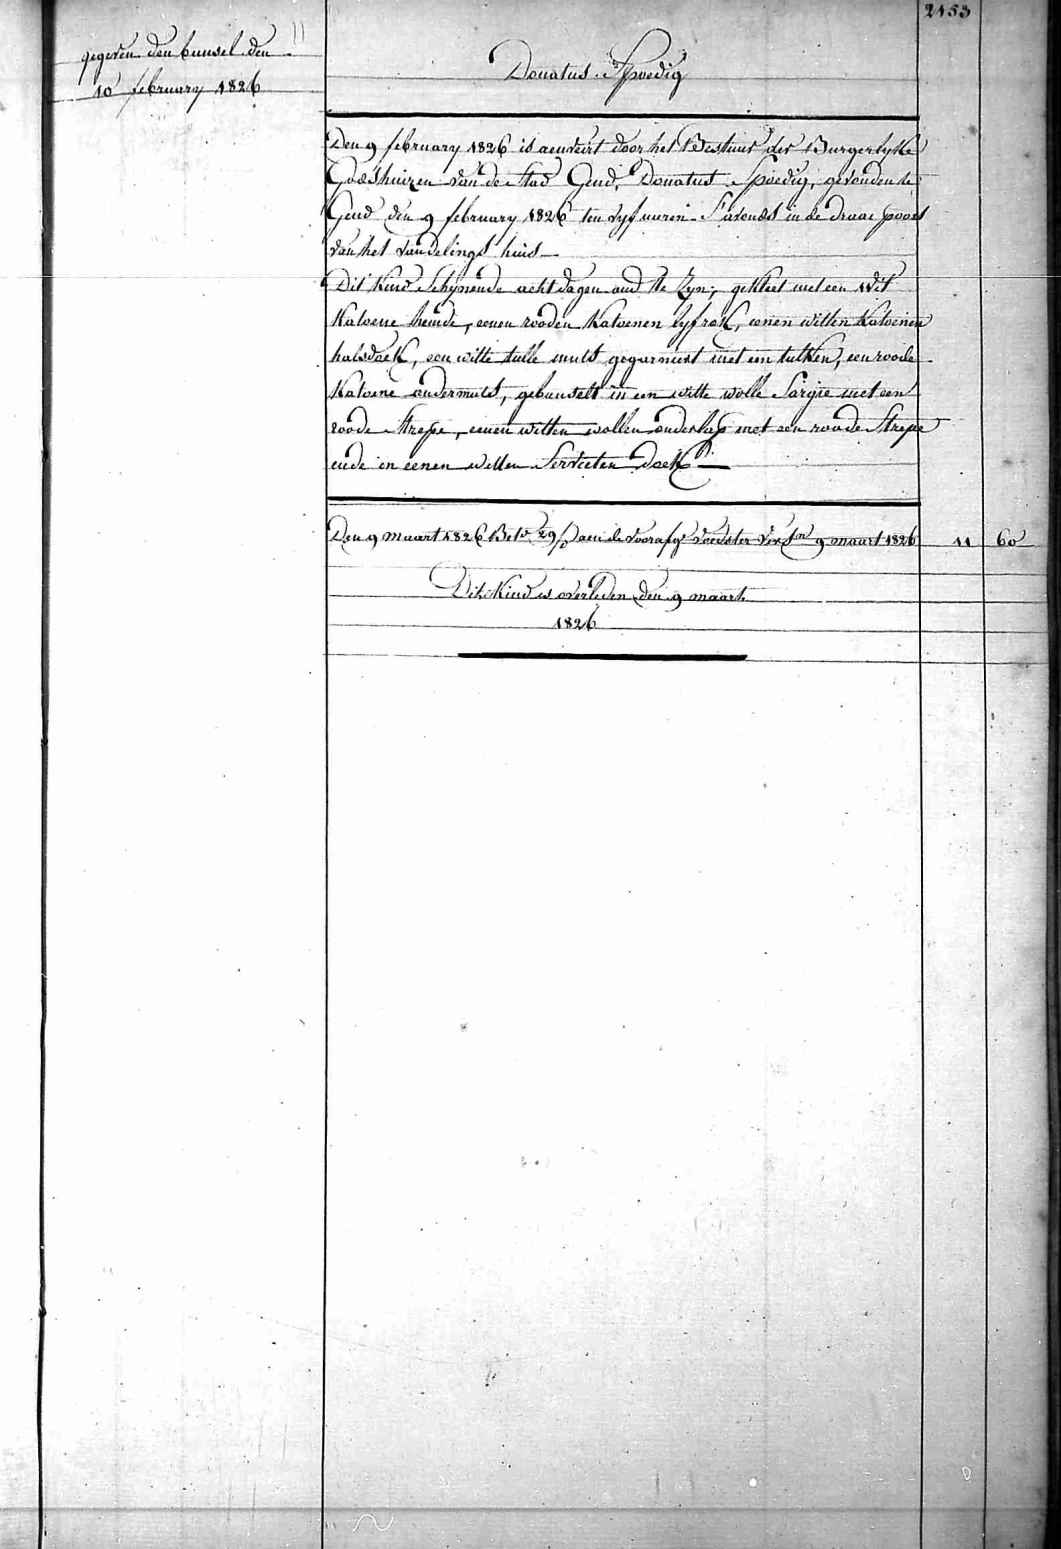 2153
gegeven den bunsel den
10 february 1826
Donatus Spoedig
Den 9 february 1826 is aenveirt door het Bestuur der Burgerlyke
Godshuizen van de Stad Gend, Donatus Spoedig, gevonden te
Gend den 9 february 1826 ten vyf uuren S'avonds in de draae poort
van het vondelings huis
Dit kind Schynende acht dagen oud te Zyn, gekleet met een wit
katoene hemde, eenen rooden katoenen lyfrok, eenen witten katoenen
halsdoek, een witte tulle muts gegarneert met een tulken, een roode
katoene ondermuts, gebunselt in een witte wolle Sargie met een
roode Strepe, eenen witten wollen onderlap met een roode Strepe
ende in eenen witten Servieten doek
Den 9 maart 1826 Bet. 29 aen de voorsz. voedster 9 maart 1826 11 60
Dit kind is overleden den 9 maart
1826